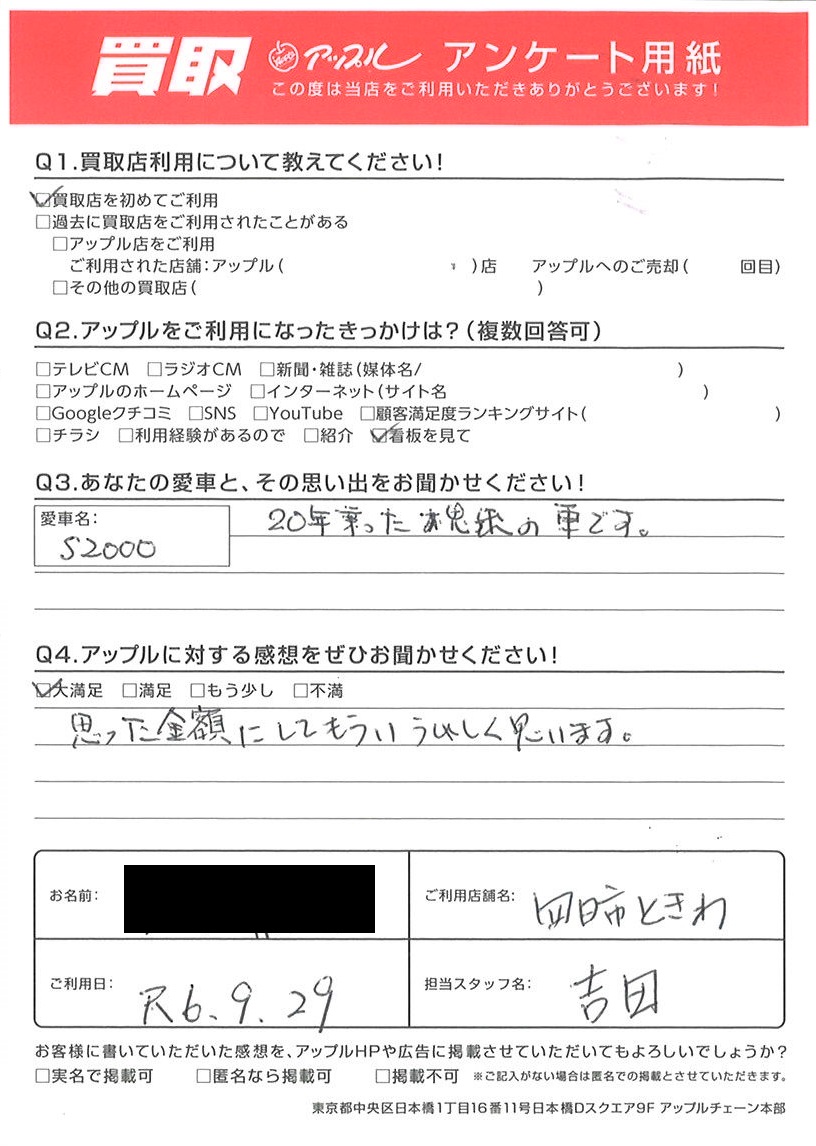 買取 アップル アンケート用紙
この度は当店をご利用いただきありがとうございます!
Q1.買取店利用について教えてください!
☑買取店を初めてご利用
□過去に買取店をご利用されたことがある
□アップル店をご利用
ご利用された店舗:アップル( )店 アップルへのご売却( 回目)
□その他の買取店( )
Q2.アップルをご利用になったきっかけは?(複数回答可)
□テレビCM □ラジオCM □新聞・雑誌(媒体名/ )
□アップルのホームページ □インターネット(サイト名 )
□Googleクチコミ □SNS □YouTube □顧客満足度ランキングサイト( )
□チラシ □利用経験があるので □紹介 ☑看板を見て
Q3.あなたの愛車と、その思い出をお聞かせください!
愛車名:
S2000
20年乗った の車です。
Q4.アップルに対する感想をぜひお聞かせください!
☑大満足 □満足 □もう少し □不満
思った金額にしてもらいうれしく思います。
お名前:
ご利用店舗名: 四日市ときわ
ご利用日: R6.9.29
担当スタッフ名: 吉田
お客様に書いていただいた感想を、アップルHPや広告に掲載させていただいてもよろしいでしょうか?
□実名で掲載可 □匿名なら掲載可 □掲載不可 ※ご記入がない場合は匿名での掲載とさせていただきます。
東京都中央区日本橋1丁目16番11号日本橋Dスクエア9F アップルチェーン本部